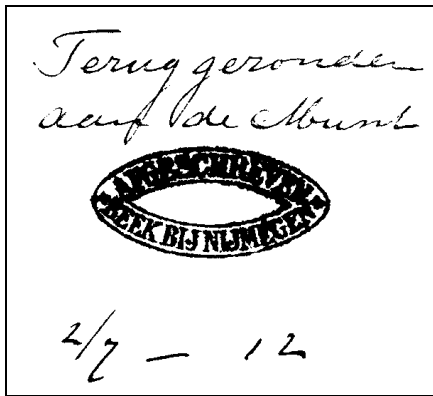 Teruggezonden
aan de Munt
AFGESCHREVEN
BEEK BIJ NIJMEGEN
2/7 — 12